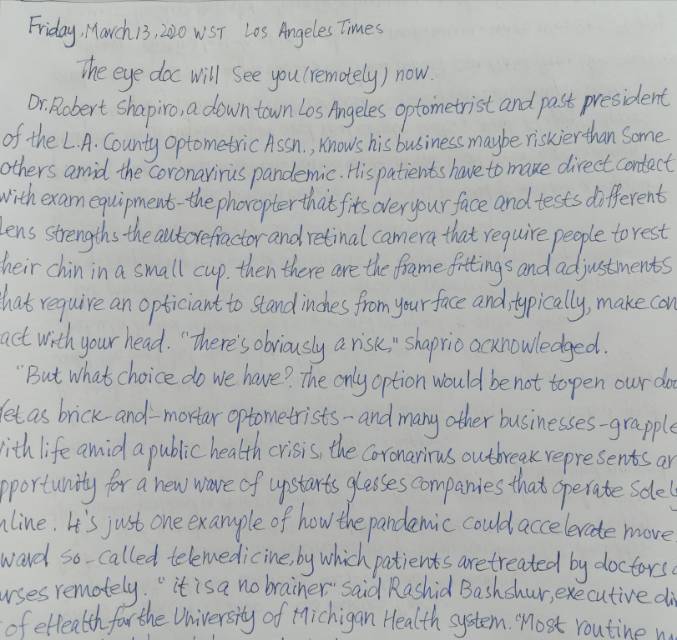 Friday, March 13, 2020 WST Los Angeles Times
The eye doc will see you (remotely) now.
Dr. Robert Shapiro, a down town Los Angeles optometrist and past president
of the L.A. County Optometric Assn., knows his business maybe riskier than some
others amid the coronavirus pandemic. His patients have to make direct contact
with exam equipment-the phoropter that fits over your face and tests different
lens strengths-the autorefractor and retinal camera that require people to rest
heir chin in a small cup. then there are the frame fittings and adjustments
hat require an opticiant to stand inches from your face and, typically, make con
act with your head. "There's obviously a risk," shaprio acknowledged.
"But what choice do we have? The only option would be not to open our doo
Yet as brick-and-mortar optometrists-and many other businesses-grapple
with life amid a public health crisis, the coronavirus outbreak represents an
pportunity for a new wave of upstarts glasses companies that operate solely
nline. It's just one example of how the pandemic could accelerate move
ward so-called telemedicine, by which patients are treated by doctors
urses remotely. "it is a no brainer" said Rashid Bashshur, executive di
of eHealth for the University of Michigan Health system. "Most routine